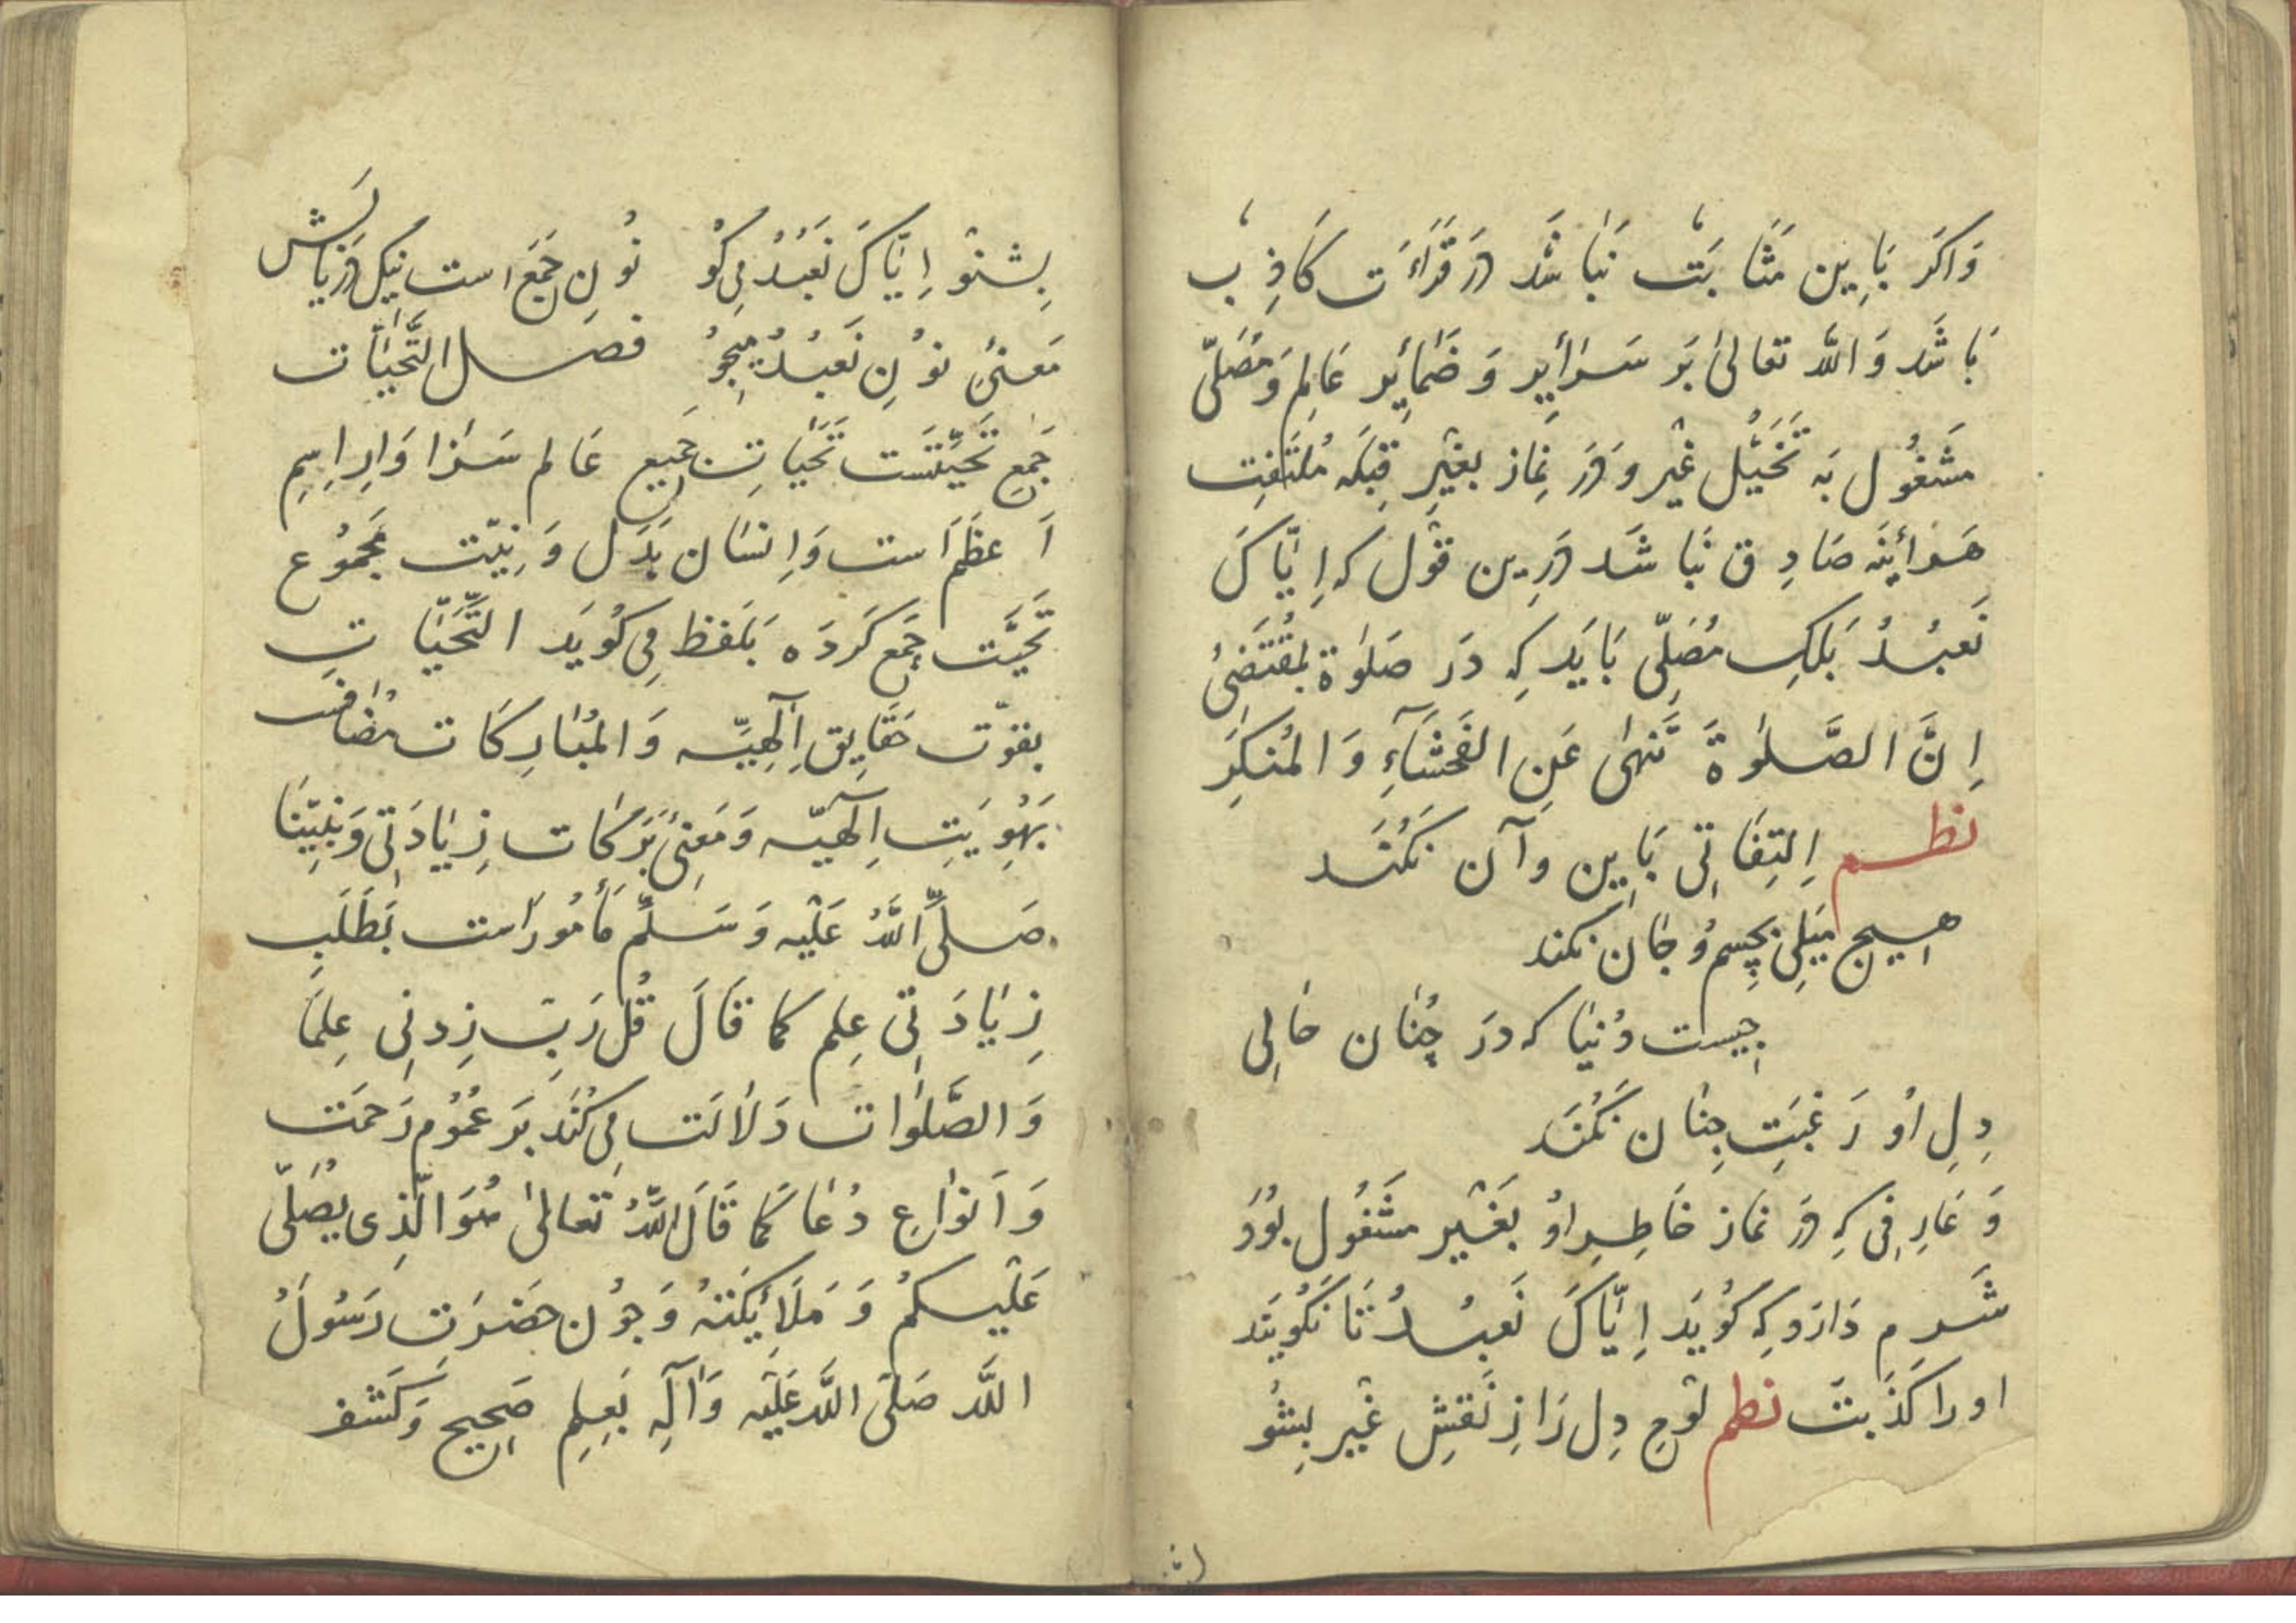 وَاکَر بَاِین مَثَابَت نَبَاشَد دَر قَرَاءَت کَاذِب
بَاشَد وَاللَّه تعالیٰ بَر سَرَایِر وَ ضَمَایِر عَالِم وَ مُصَلّی
مَشغُول بَه تَخَیُّل غَیر وَ دَر نِماز بغَیرِ قِبلَه مُلتَفِت
هَرآیِنَه صَادِق نَبَاشَد دَرین قَول که اِیَّاکَ
نَعبُدُ بَلکِ مُصَلّی بَایَد کِه دَر صَلوٰة بمُقتَضیٰ
اِنَّ الصَّلوٰةَ تَنهیٰ عَنِ الفَحشَآءِ وَالمُنکَرِ
نظم اِلتِفَاتِی بَاِین وآن نَکُنَد
هیچ مَیلِی بجِسم وُ جَان نکند
چیست دُنیَا که دَر چُنَان حَالِی
دِلِ اُو رَغبَتِ جِنَان نَکُنَد
وَ عَارِفِی کِه دَر نماز خَاطِرِ اوُ بغَیر مَشغُول بُوَد
شَرم دَارَد کِه گُویَد اِیَّاکَ نَعبُدُ تَا نَکُویَند
اورا کَذَبتَ نظم لَوحِ دِل رَا زِ نَقشِ غَیر بِشُو
بِشنَو اِیَّاکَ نَعبُدُ مِی گُو نُونِ جَمعَ است نیک دَریَابَش
مَعنیِ نُونِ نَعبُدُ میجُو فصل التَّحیَّات
جَمعِ تَحیَّتَست تَحَیَّاتِ جَمیع عَالم سَزاوَارِ اِسمِ
اَعظَم اَست وَاِنسَان بَدَل وَ نِیَّت مَجمُوع
تَحیَّت جَمع کَردَه بَلَفظ مِی گُویَد التَّحَیَّاتِ
بقوّت حَقَایِق اِلٓهِیَّه وَ المُبَارِکَات مُضَافست
بَهُوِیَتِ اِلٓهِیَّه وَ مَعنیِ بَرَکَات زِیَادَتِی وَ نَبِیِّنَا
صَلَّی اللَّهُ عَلَیه وَ سَلَّم مَأمُورَاست بَطَلَبِ
زِیَادَتِی عِلم کَمَا قَالَ قُل رَبِّ زِدنِی عِلمًا
وَ الصَّلَوَات دَلَالَت مِی کُنَد بَر عُمُوم رَحمَت
وَ اَنوَاعِ دُعَا کَمَا قَالَ اللَّهُ تَعالیٰ هُوَ الَّذِی یُصَلّی
عَلَیکُم وَ مَلَائِکَتهُ وَ چُون حَضرَتِ رَسُول
اللَّه صَلَّی اللَّه عَلَیه وَآلِه بَعِلمِ صَحِیح وَ کَشف